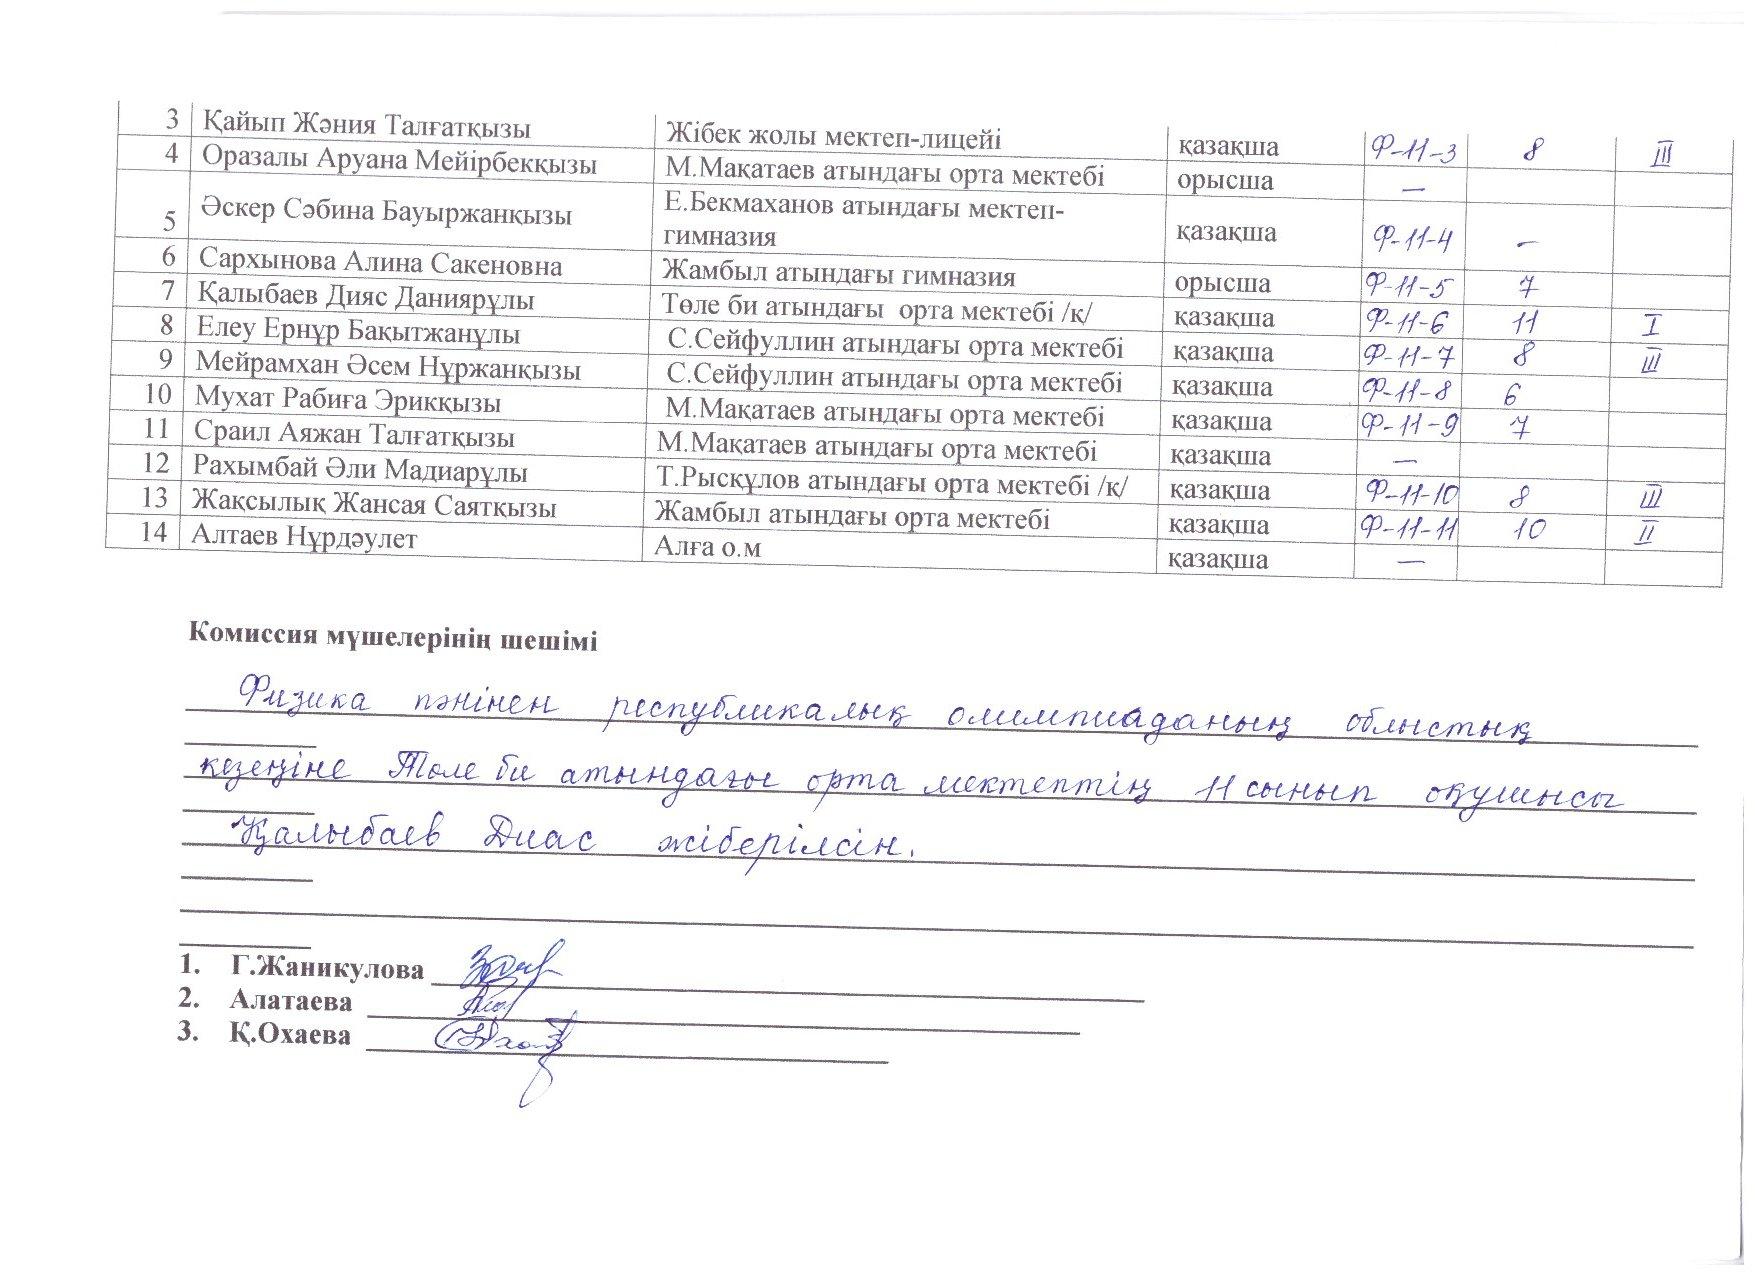 3 Қайып Жәния Талғатқызы Жібек жолы мектеп-лицейі қазақша Ф-11-3 8 III
4 Оразалы Аруана Мейірбекқызы М.Мақатаев атындағы орта мектебі орысша —
5 Әскер Сәбина Бауыржанқызы Е.Бекмаханов атындағы мектеп-
гимназия қазақша Ф-11-4 —
6 Сархынова Алина Сакеновна Жамбыл атындағы гимназия орысша Ф-11-5 7
7 Қалыбаев Дияс Даниярұлы Төле би атындағы орта мектебі /қ/ қазақша Ф-11-6 11 I
8 Елеу Ернұр Бақытжанұлы С.Сейфуллин атындағы орта мектебі қазақша Ф-11-7 8 III
9 Мейрамхан Әсем Нұржанқызы С.Сейфуллин атындағы орта мектебі қазақша Ф-11-8 6
10 Мухат Рабиға Эрикқызы М.Мақатаев атындағы орта мектебі қазақша Ф-11-9 7
11 Сраил Аяжан Талғатқызы М.Мақатаев атындағы орта мектебі қазақша —
12 Рахымбай Әли Мадиарұлы Т.Рысқұлов атындағы орта мектебі /қ/ қазақша Ф-11-10 8 III
13 Жақсылық Жансая Саятқызы Жамбыл атындағы орта мектебі қазақша Ф-11-11 10 II
14 Алтаев Нұрдәулет Алға о.м қазақша —
Комиссия мүшелерінің шешімі
Физика пәнінен республикалық олимпиаданың облыстық
кезеңіне Төле би атындағы орта мектептің 11 сынып оқушысы
Қалыбаев Диас жіберілсін.
1. Г.Жаникулова
2. Алатаева
3. Қ.Охаева